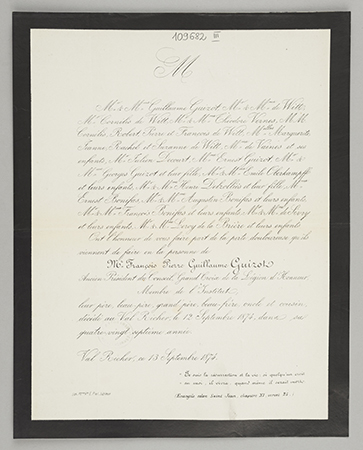 109682 III
M
Mr & Mme Guillaume Guizot, Mr & Mme de Witt,
Mr Cornelis de Witt, Mr & Mme Theodore Vernes, M.M.
Cornelis, Robert, Pierre et François de Witt, Mlles Marguerite
Jeanne, Rachel et Suzanne de Witt, Mr de Vaines et ses
enfants, Mr Julien Mme Ernest Guizot, Mr &
Mme Georges Guizot et leur fille, Mr & Mme Emile Oberkampff
et leurs enfants, Mr & Mme Henri et leur fille, Mme
Ernest Bonifas, Mr & Mme Augustin Bonifas et leurs enfants,
Mr & Mme François Bonifas et leurs enfants, Mr & Mme de
et leurs enfants, Mr & Mme Leroy de la et leurs enfants
Ont l'honneur de vous faire part de la perte douloureuse qu'ils
viennent de faire en la personne de
Mr François Pierre Guillaume Guizot
Ancien Président du Conseil, Grand Croix de la Légion d'Honneur
Membre de l'Institut,
leur père, beau-père, grand-père, beau-frère, oncle et cousin,
décédé au Val Richer, le 12 Septembre 1874, dans sa
quatre-vingt-septième année.
Val Richer, ce 13 Septembre 1874.
Je suis la résurrection et la vie; celui qui croit
en moi, vivra, quand même il serait mort.
(Evangile selon Saint Jean, chapitre XI, verset 25.)